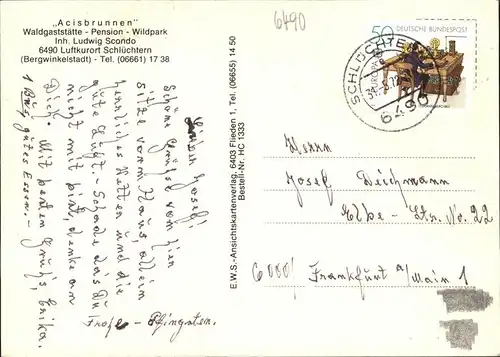 „Acisbrunnen"
Waldgaststätte - Pension - Wildpark
Inh. Ludwig Scondo
6490 Luftkurort Schlüchtern
(Bergwinkelstadt) - Tel. (06661) 17 38
6490
50 DEUTSCHE BUNDESPOST
EUROPA
SCHLÜCHTERN
6490
Lieber Josef!
Schöne Grüße von hier
sitze vorm Haus, allein
herrliches Wetter und die
gute Luft. Schade das Du
nicht mit bist, denke an
Dich. Mit besten Grüß, Erika.
gutes Essen. -
Frohe - Pfingsten.
E.W.S.-Ansichtskartenverlag, 6403 Flieden 1, Tel. (06655) 14 50
Bestell-Nr. HC 1333
Herrn
Josef Deichmann
Elbe - Str. No. 22
6000/ Frankfurt a/Main 1